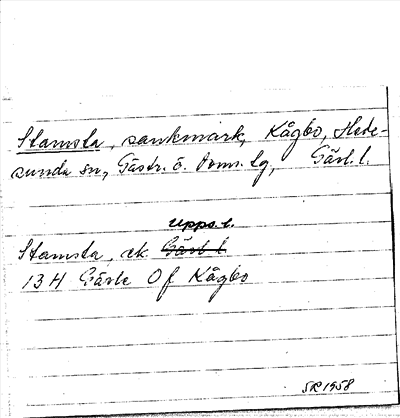 Stamsta, sankmark, Kågbo, Hede-
sunda sn, Gästr. ö. doms. tg, Gävl. l.
Upps. l.
Stamsta, ek Gävl l
13H Gävle Of Kågbo
SR 1958